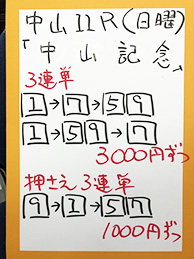 中山11R(日曜)
「中山記念」
3連単
1→7→59
1→59→7
3000円ずつ
押さえ3連単
9→1→57
1000円ずつ